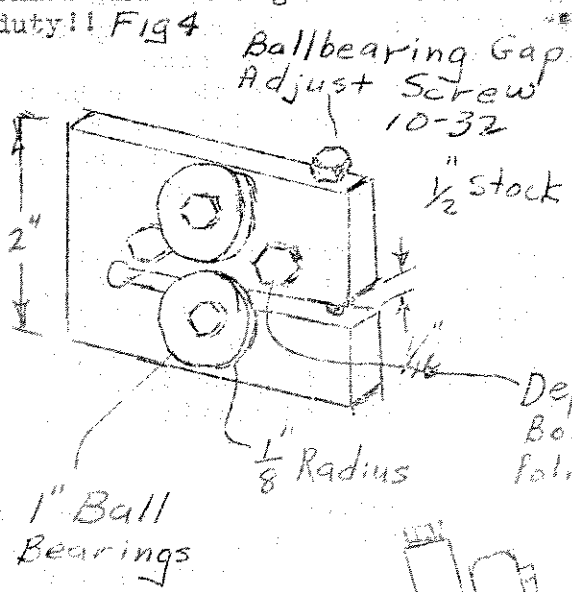 duty!! Fig 4
Ballbearing Gap
Adjust Screw
10-32
1/2" Stock
2"
1/16"
1/8" Radius
1" Ball
Bearings